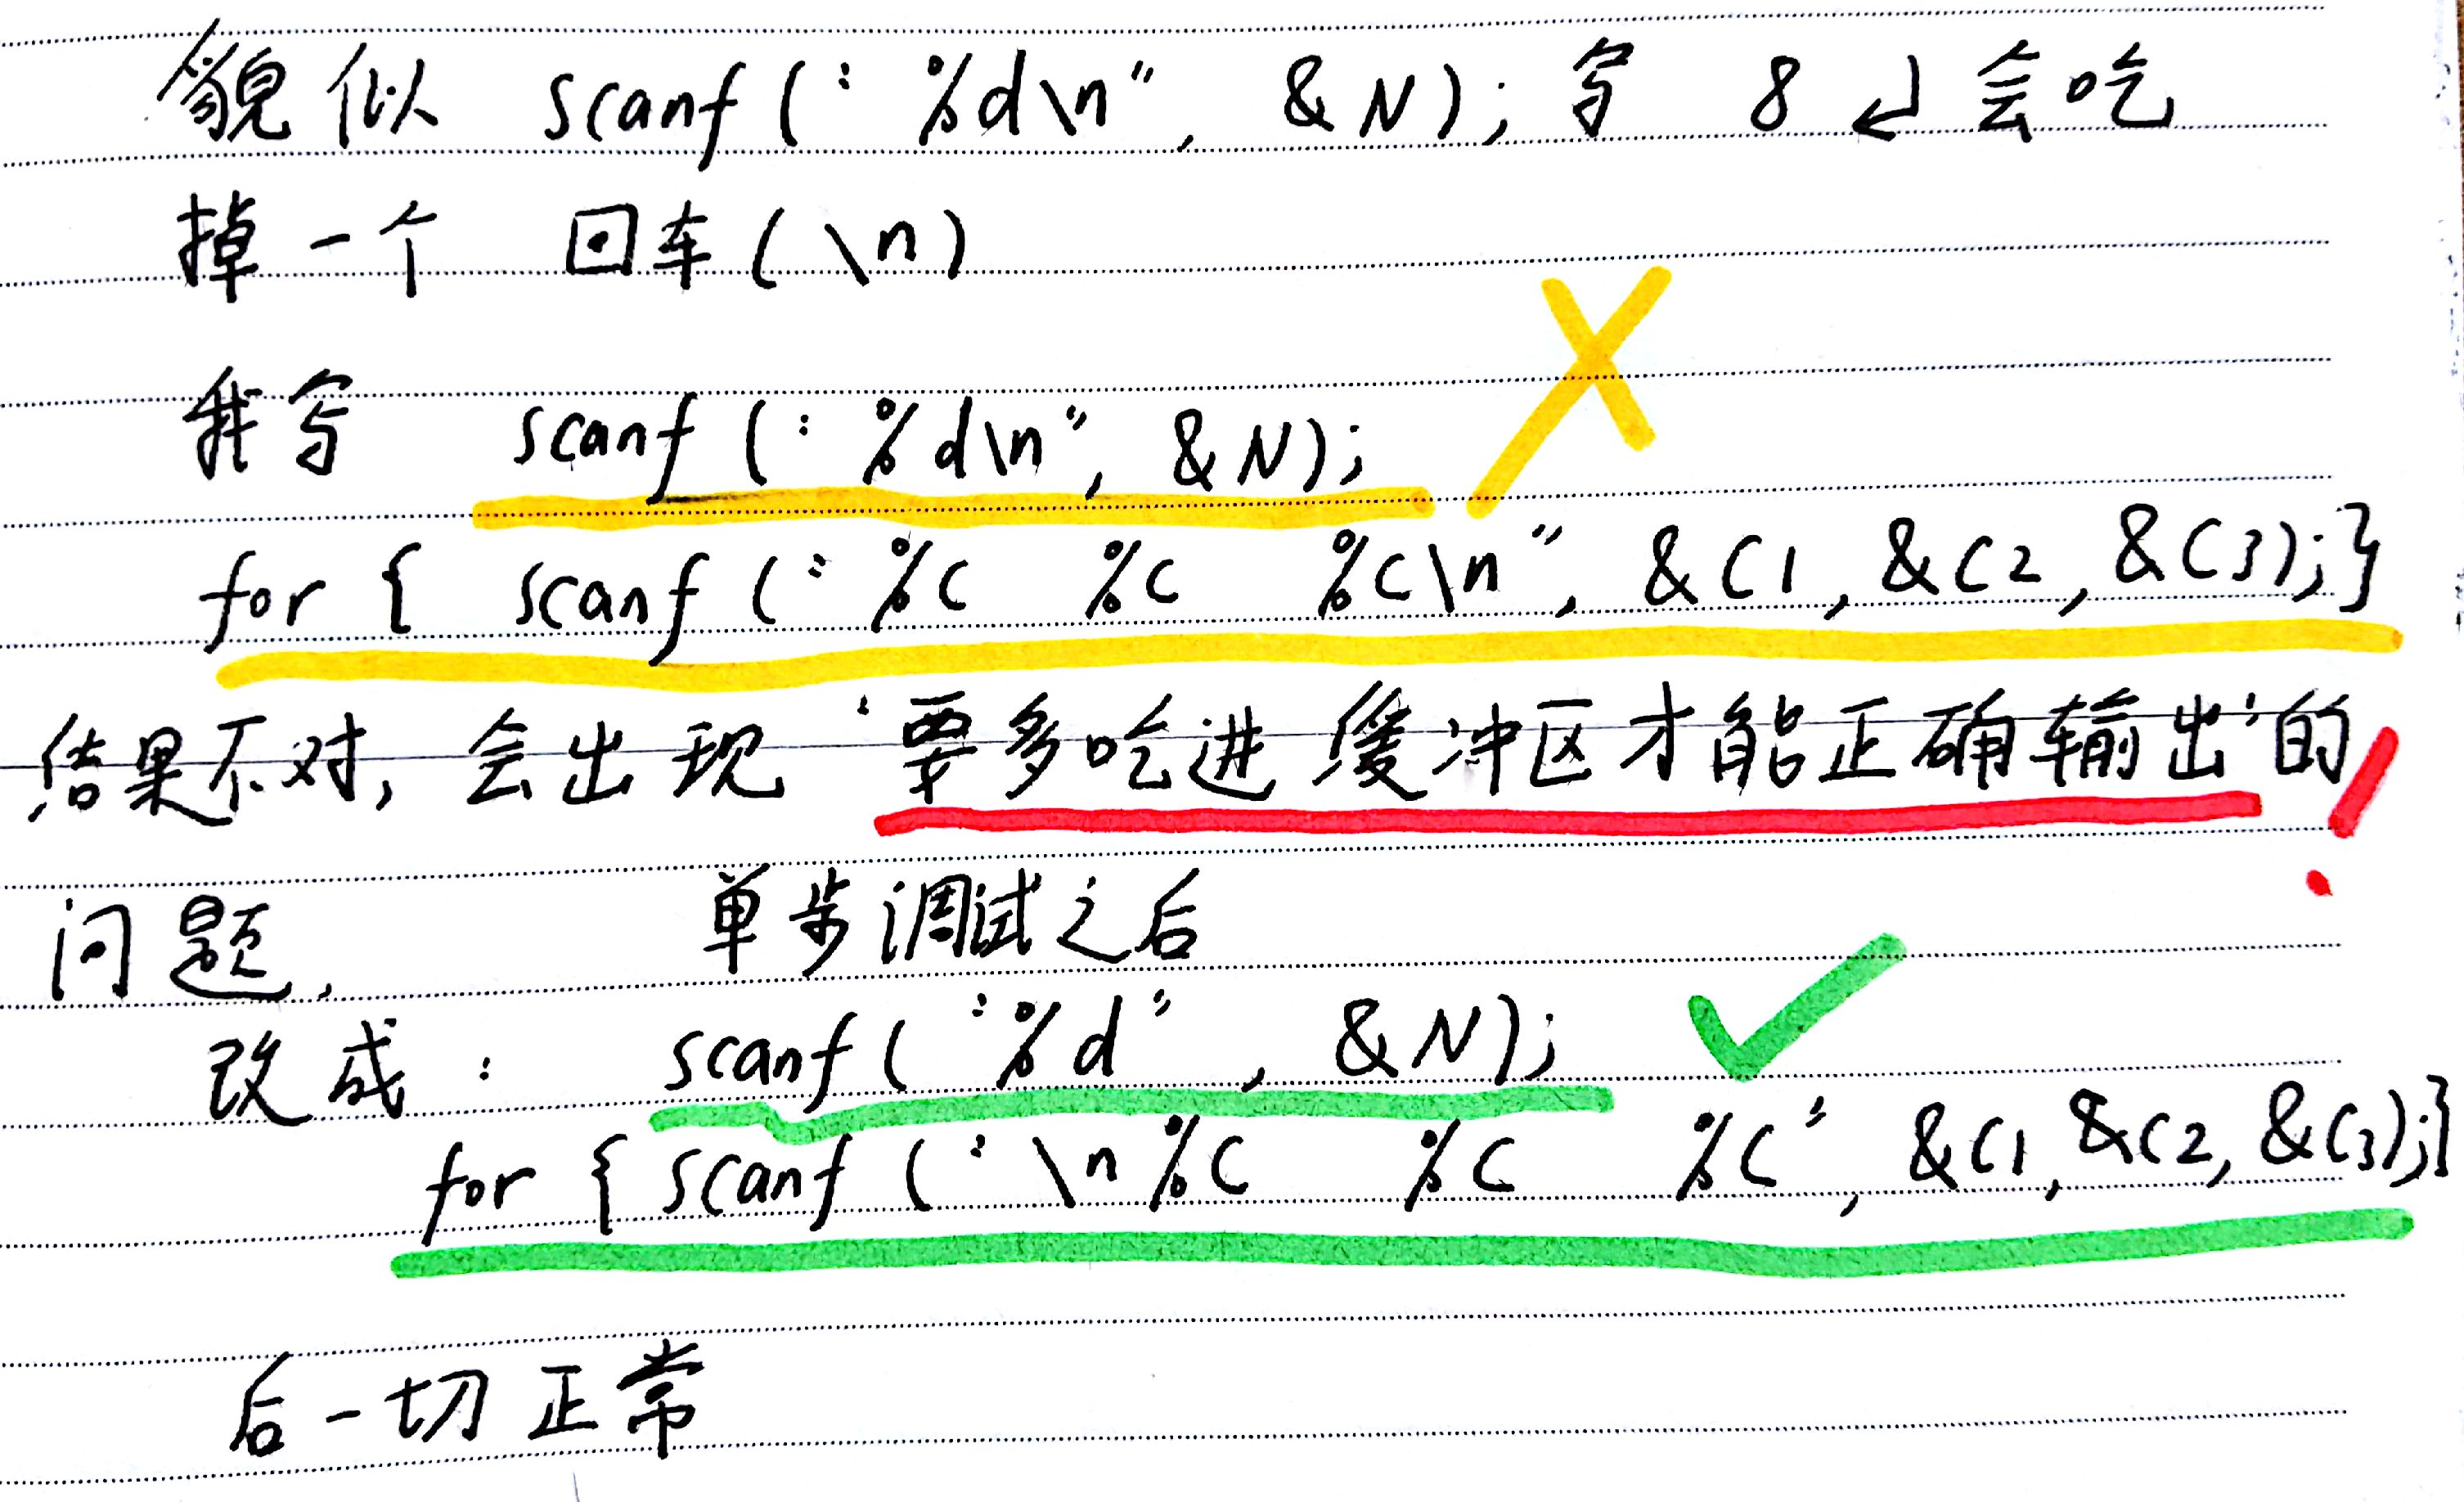 貌似 scanf("%d\n", &N); 写 8 ↲ 会吃
掉一个 回车(\n)
我写 scanf("%d\n", &N);
for { scanf("%c %c %c\n", &c1, &c2, &c3);}
结果不对, 会出现 '要多吃进缓冲区才能正确输出'的
问题. 单步调试之后
改成: scanf("%d", &N);
for { scanf("\n%c %c %c", &c1, &c2, &c3);}
后一切正常